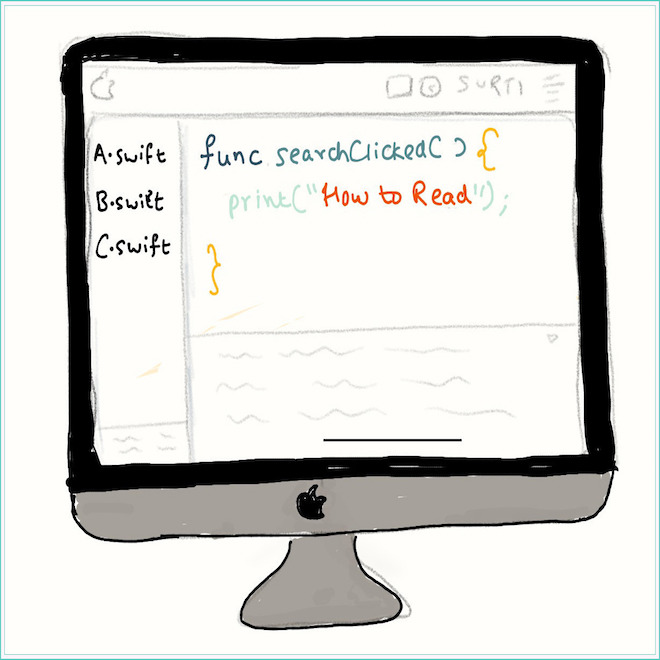 SURTI
A.swift
B.swift
C.swift
func searchClicked( ) {
print("How to Read");
}